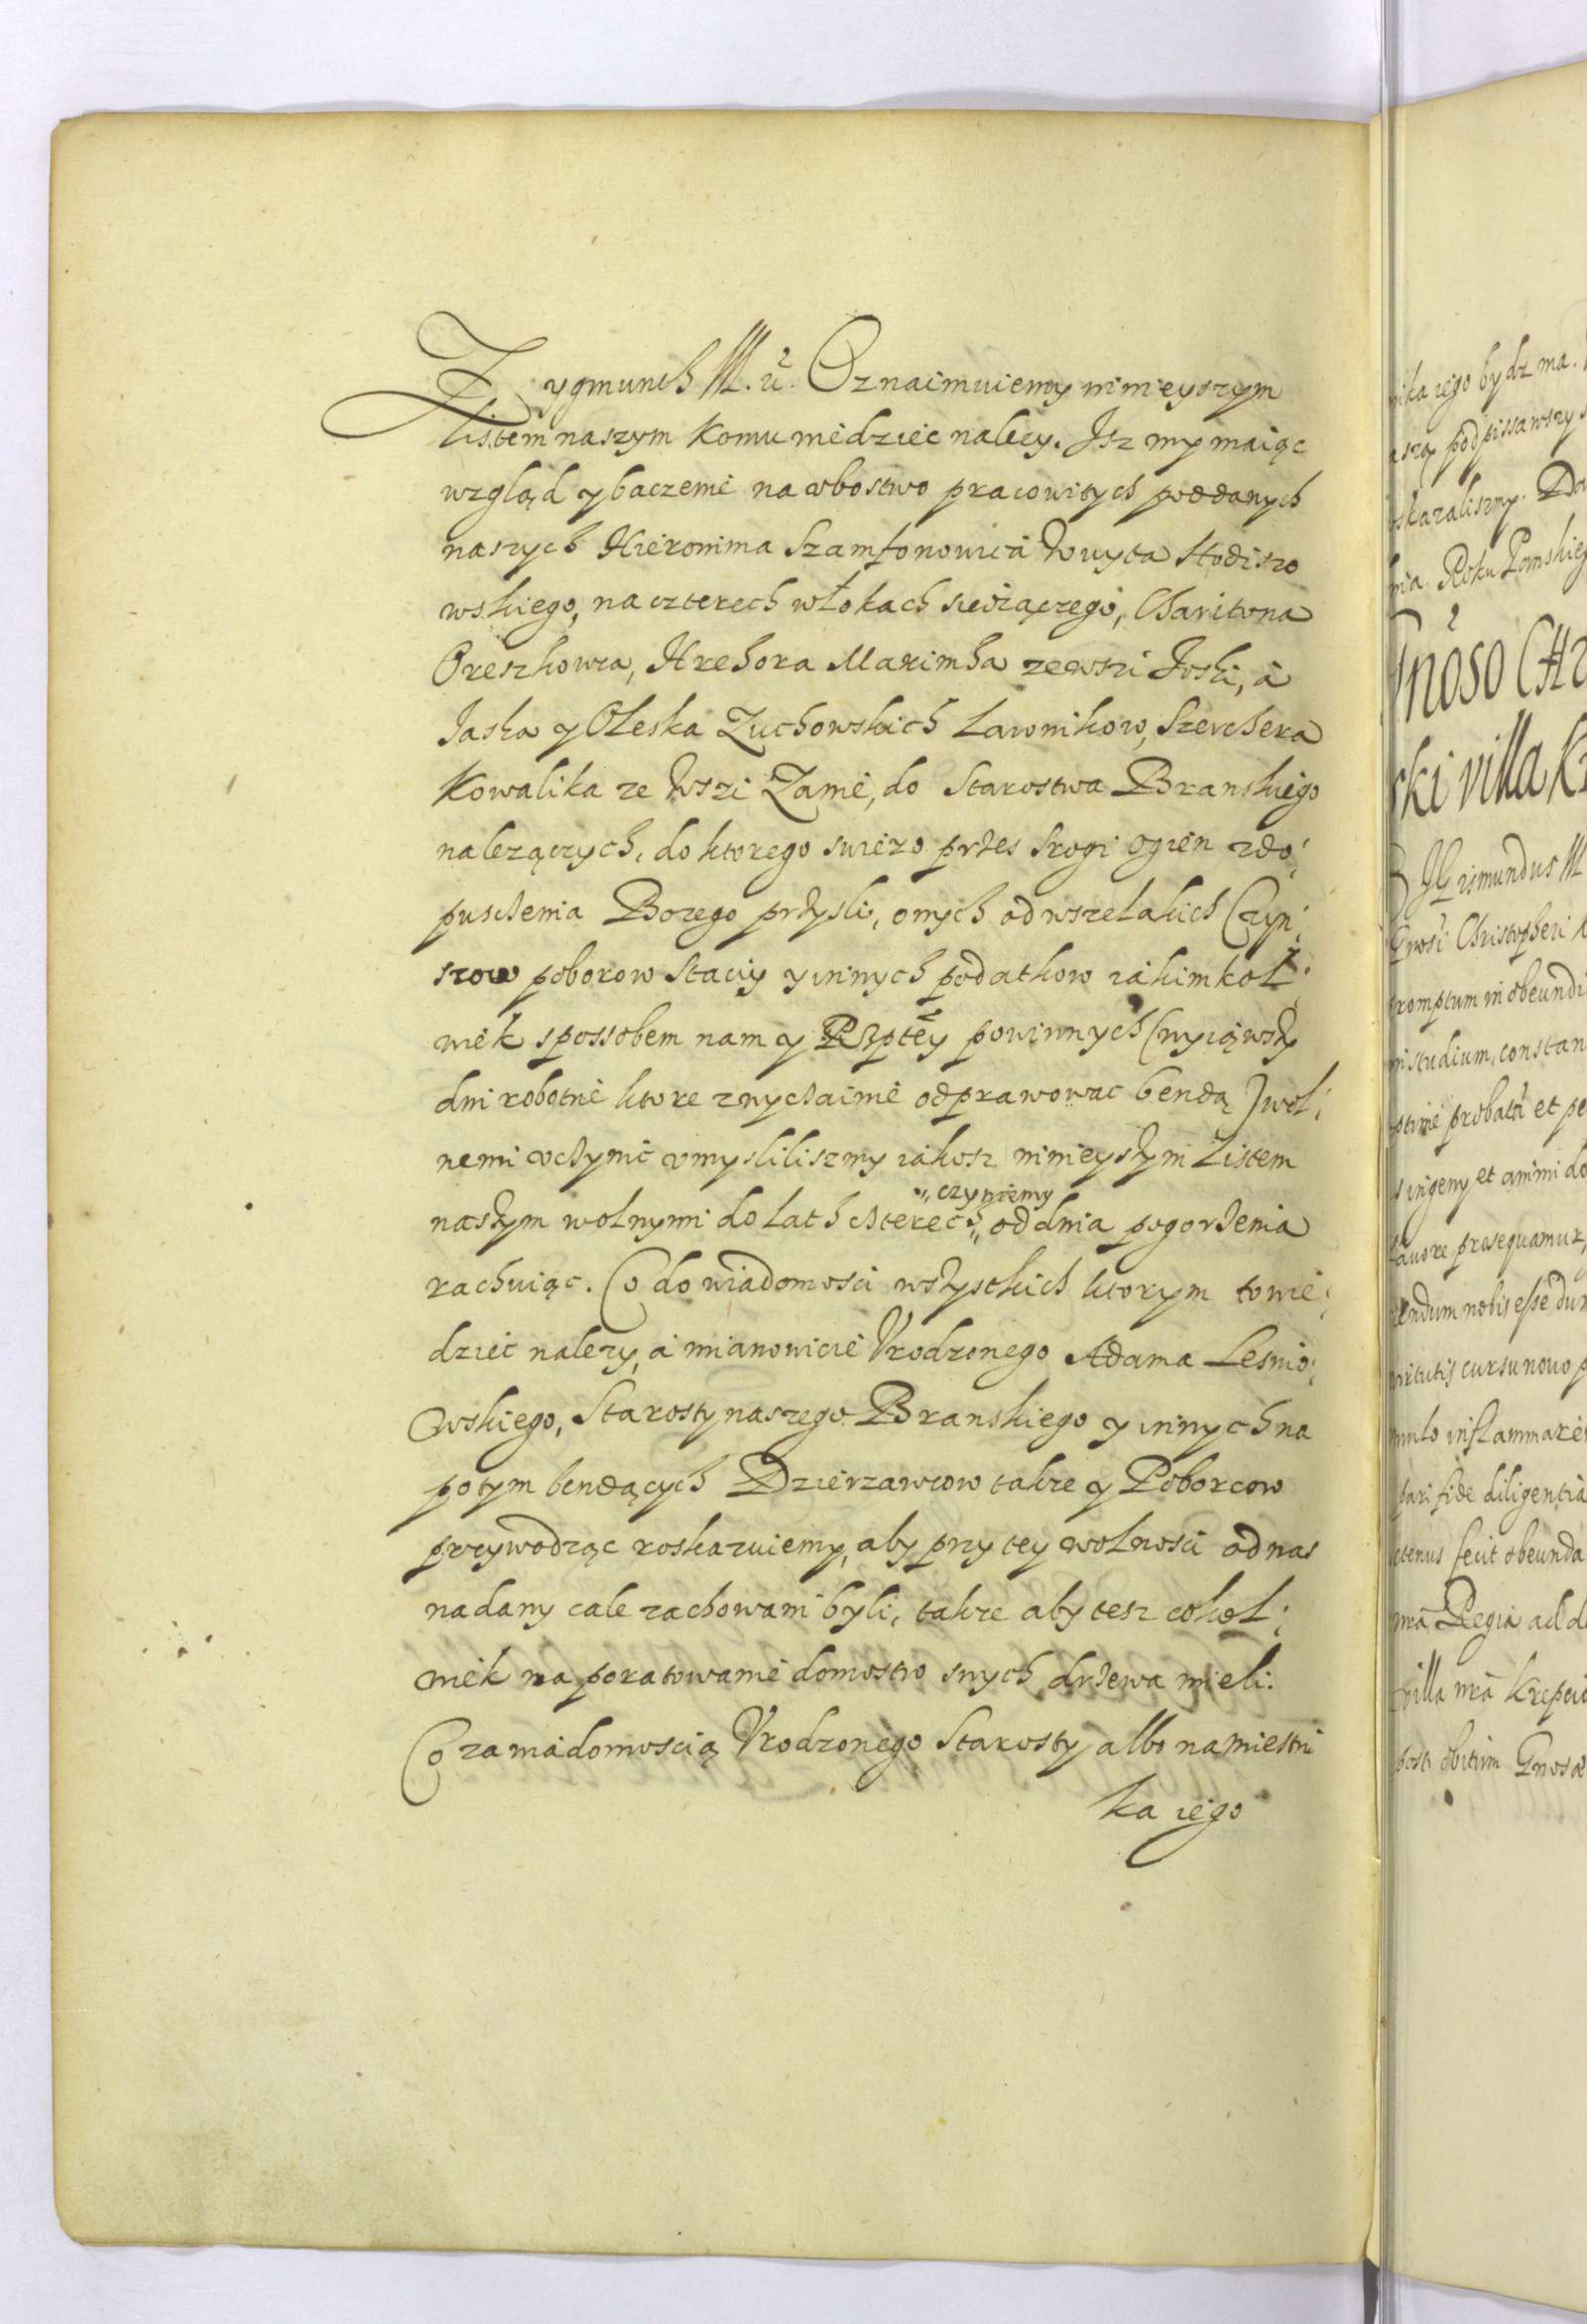 Zygmunth III. etc. Oznaimuiemy ninieyszym
listem naszym Komu wiedziec nalezy. Isz my maiąc
wzgląd y baczenie na vbostwo pracowitych poddanych
naszych Hieronima Szamsonowica Woyta Hodiszo
wskiego, na czterech włokach siedzączego, Charitona
Oreszkowca, Hrehora Maximka ze wszi Joski, á
Jaska y Oleska Zuchowskich Lawnikow,
Kowalika ze Wszi Zanie, do Starostwa Branskiego
nalezączych, do ktorego swiezo przes srogi ogien zdo:
pusczenia Bozego przysli, onych od wszelakich Czyn:
szow poborow Staciy y innych podatkow iakimkol:
wiek spossobem nam y Rzptey powinnych (wyiąwszy
dni robotne ktore zwyczaine odprawowac bendą) wol:
nemi vczynic vmysliliszmy iakosz ninieyszym Listem
naszym wolnymi do lath czterech czyniemy od dnia pogorzenia
rachuiąc. Co do wiadomosci wszystkich ktorym to wie:
dziec nalezy, á mianowicie Vrodzonego Adama Lesnio:
wskiego, Starosty naszego Branskiego y innych na
potym bendących Dzierzawcow takze y Poborcow
przywodząc roskazuiemy, aby przy tey wolnosci od nas
nadany cale zachowani byli, takze aby tesz cokol:
wiek na poratowanie domostw swych drzewa mieli.
Co za wiadomoscią Vrodzonego Starosty albo namiestni
ka iego
nika iego bydz ma.
podpissawszy
roskazaliszmy.
Roku Panskieg
villa
Sigismundus III
Christopheri
promptum in obeundi
studium, constan
probata et pe
ingeny et animi do
fauore prosequamur,
nobis esse dux
virtutis cursu nouo p
inflammare
pari fide diligentia
fecit obeunda
nra Regia ad
villa nra
post obitum Gnosae